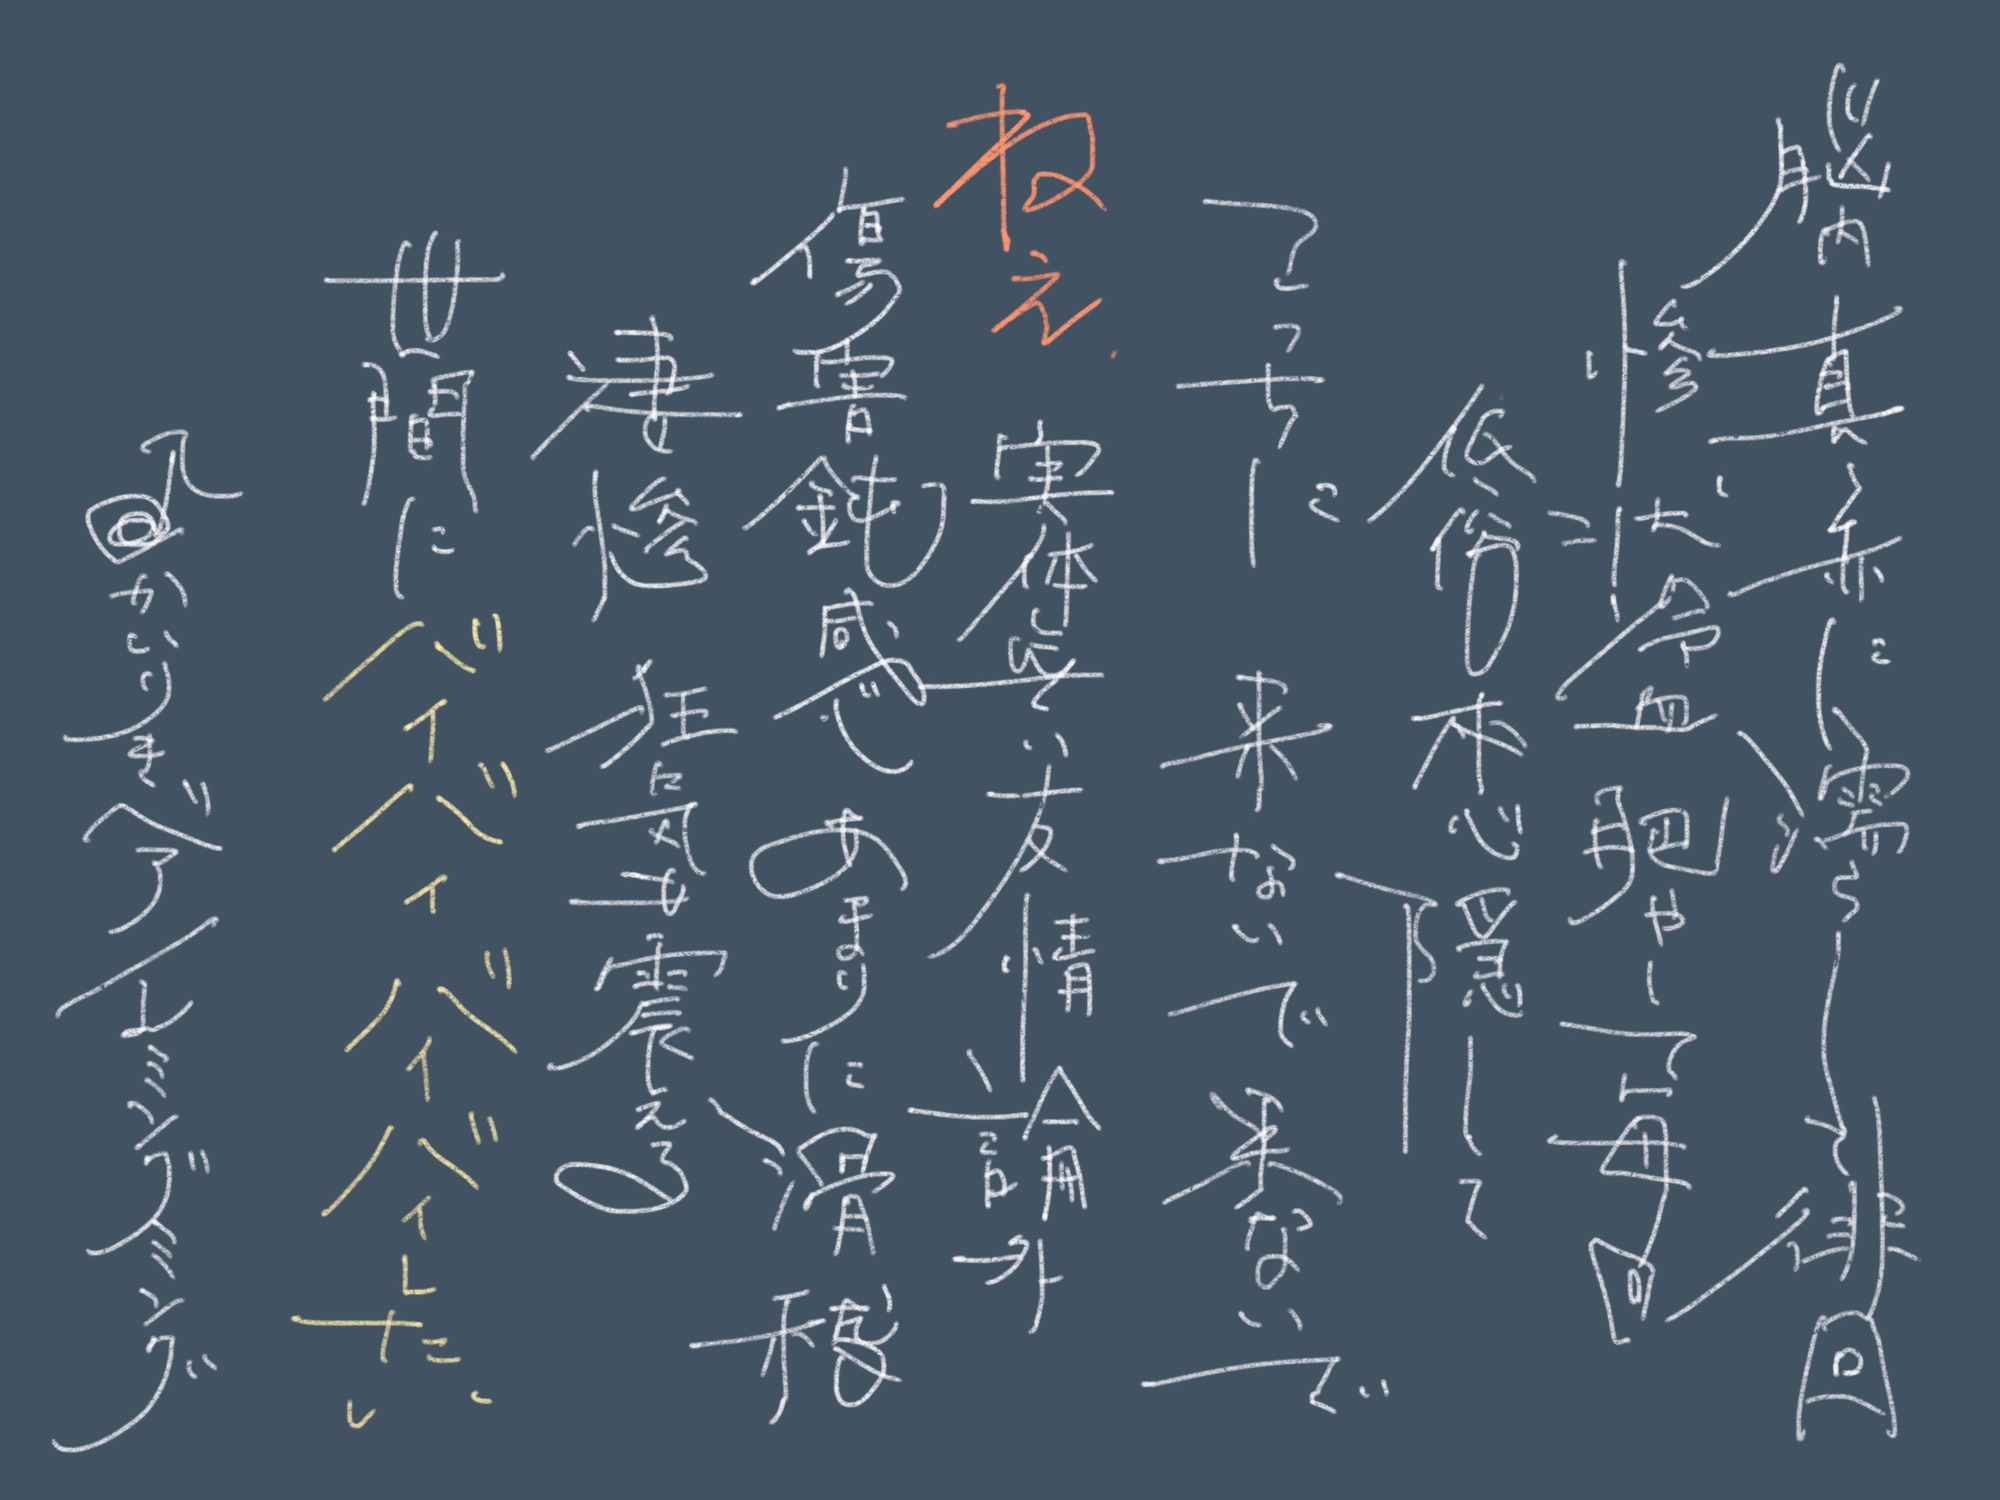 脳内 に濡らして徘徊
惨状冷血肥やして毎回
低俗本心隠して
こっちに来ないで来ないで
ねえ
実体無い友情論外
傷害鈍感であまりに滑稽
凄惨狂気も震える
世間にバイバイバイバイしたい
♪かいりきベア／レミングミング